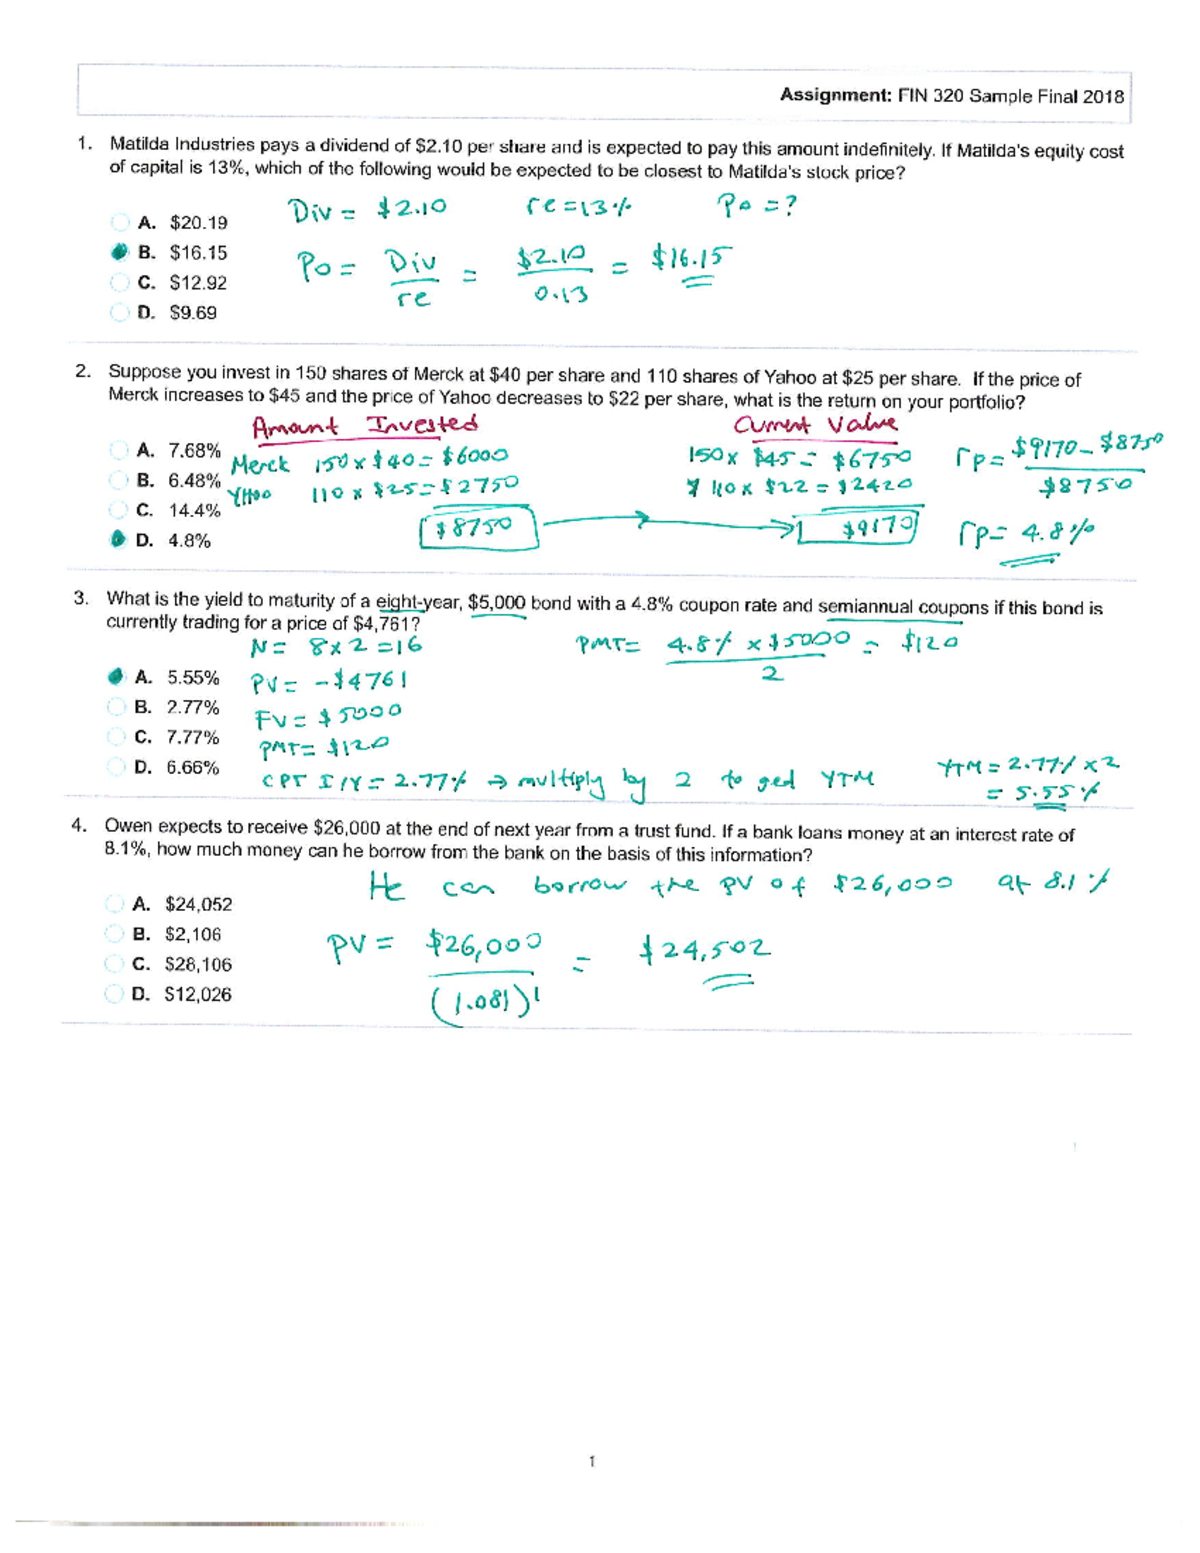 Assignment: FIN 320 Sample Final 2018
1. Matilda Industries pays a dividend of $2.10 per share and is expected to pay this amount indefinitely. If Matilda's equity cost
of capital is 13%, which of the following would be expected to be closest to Matilda's stock price?
Div = $2.10 re = 13% Po = ?
A. $20.19
B. $16.15
C. $12.92
D. $9.69
Po = Div / re = $2.10 / 0.13 = $16.15
2. Suppose you invest in 150 shares of Merck at $40 per share and 110 shares of Yahoo at $25 per share. If the price of
Merck increases to $45 and the price of Yahoo decreases to $22 per share, what is the return on your portfolio?
Amount Invested Current Value
A. 7.68%
B. 6.48%
C. 14.4%
D. 4.8%
Merck 150 x $40 = $6000 150 x $45 = $6750
YHoo 110 x $25 = $2750 110 x $22 = $2420
$8750 $9170
rp = $9170 - $8750 / $8750
rp = 4.8%
3. What is the yield to maturity of a eight-year, $5,000 bond with a 4.8% coupon rate and semiannual coupons if this bond is
currently trading for a price of $4,761?
N = 8 x 2 = 16 PMT = 4.8% x $5000 / 2 = $120
A. 5.55%
B. 2.77%
C. 7.77%
D. 6.66%
PV = -$4761
FV = $5000
PMT = $120
CPT I/Y = 2.77% → multiply by 2 to ged YTM
YTM = 2.77% x 2
= 5.55%
4. Owen expects to receive $26,000 at the end of next year from a trust fund. If a bank loans money at an interest rate of
8.1%, how much money can he borrow from the bank on the basis of this information?
He can borrow the PV of $26,000 at 8.1%
A. $24,052
B. $2,106
C. $28,106
D. $12,026
PV = $26,000 / (1.081)1 = $24,502
1